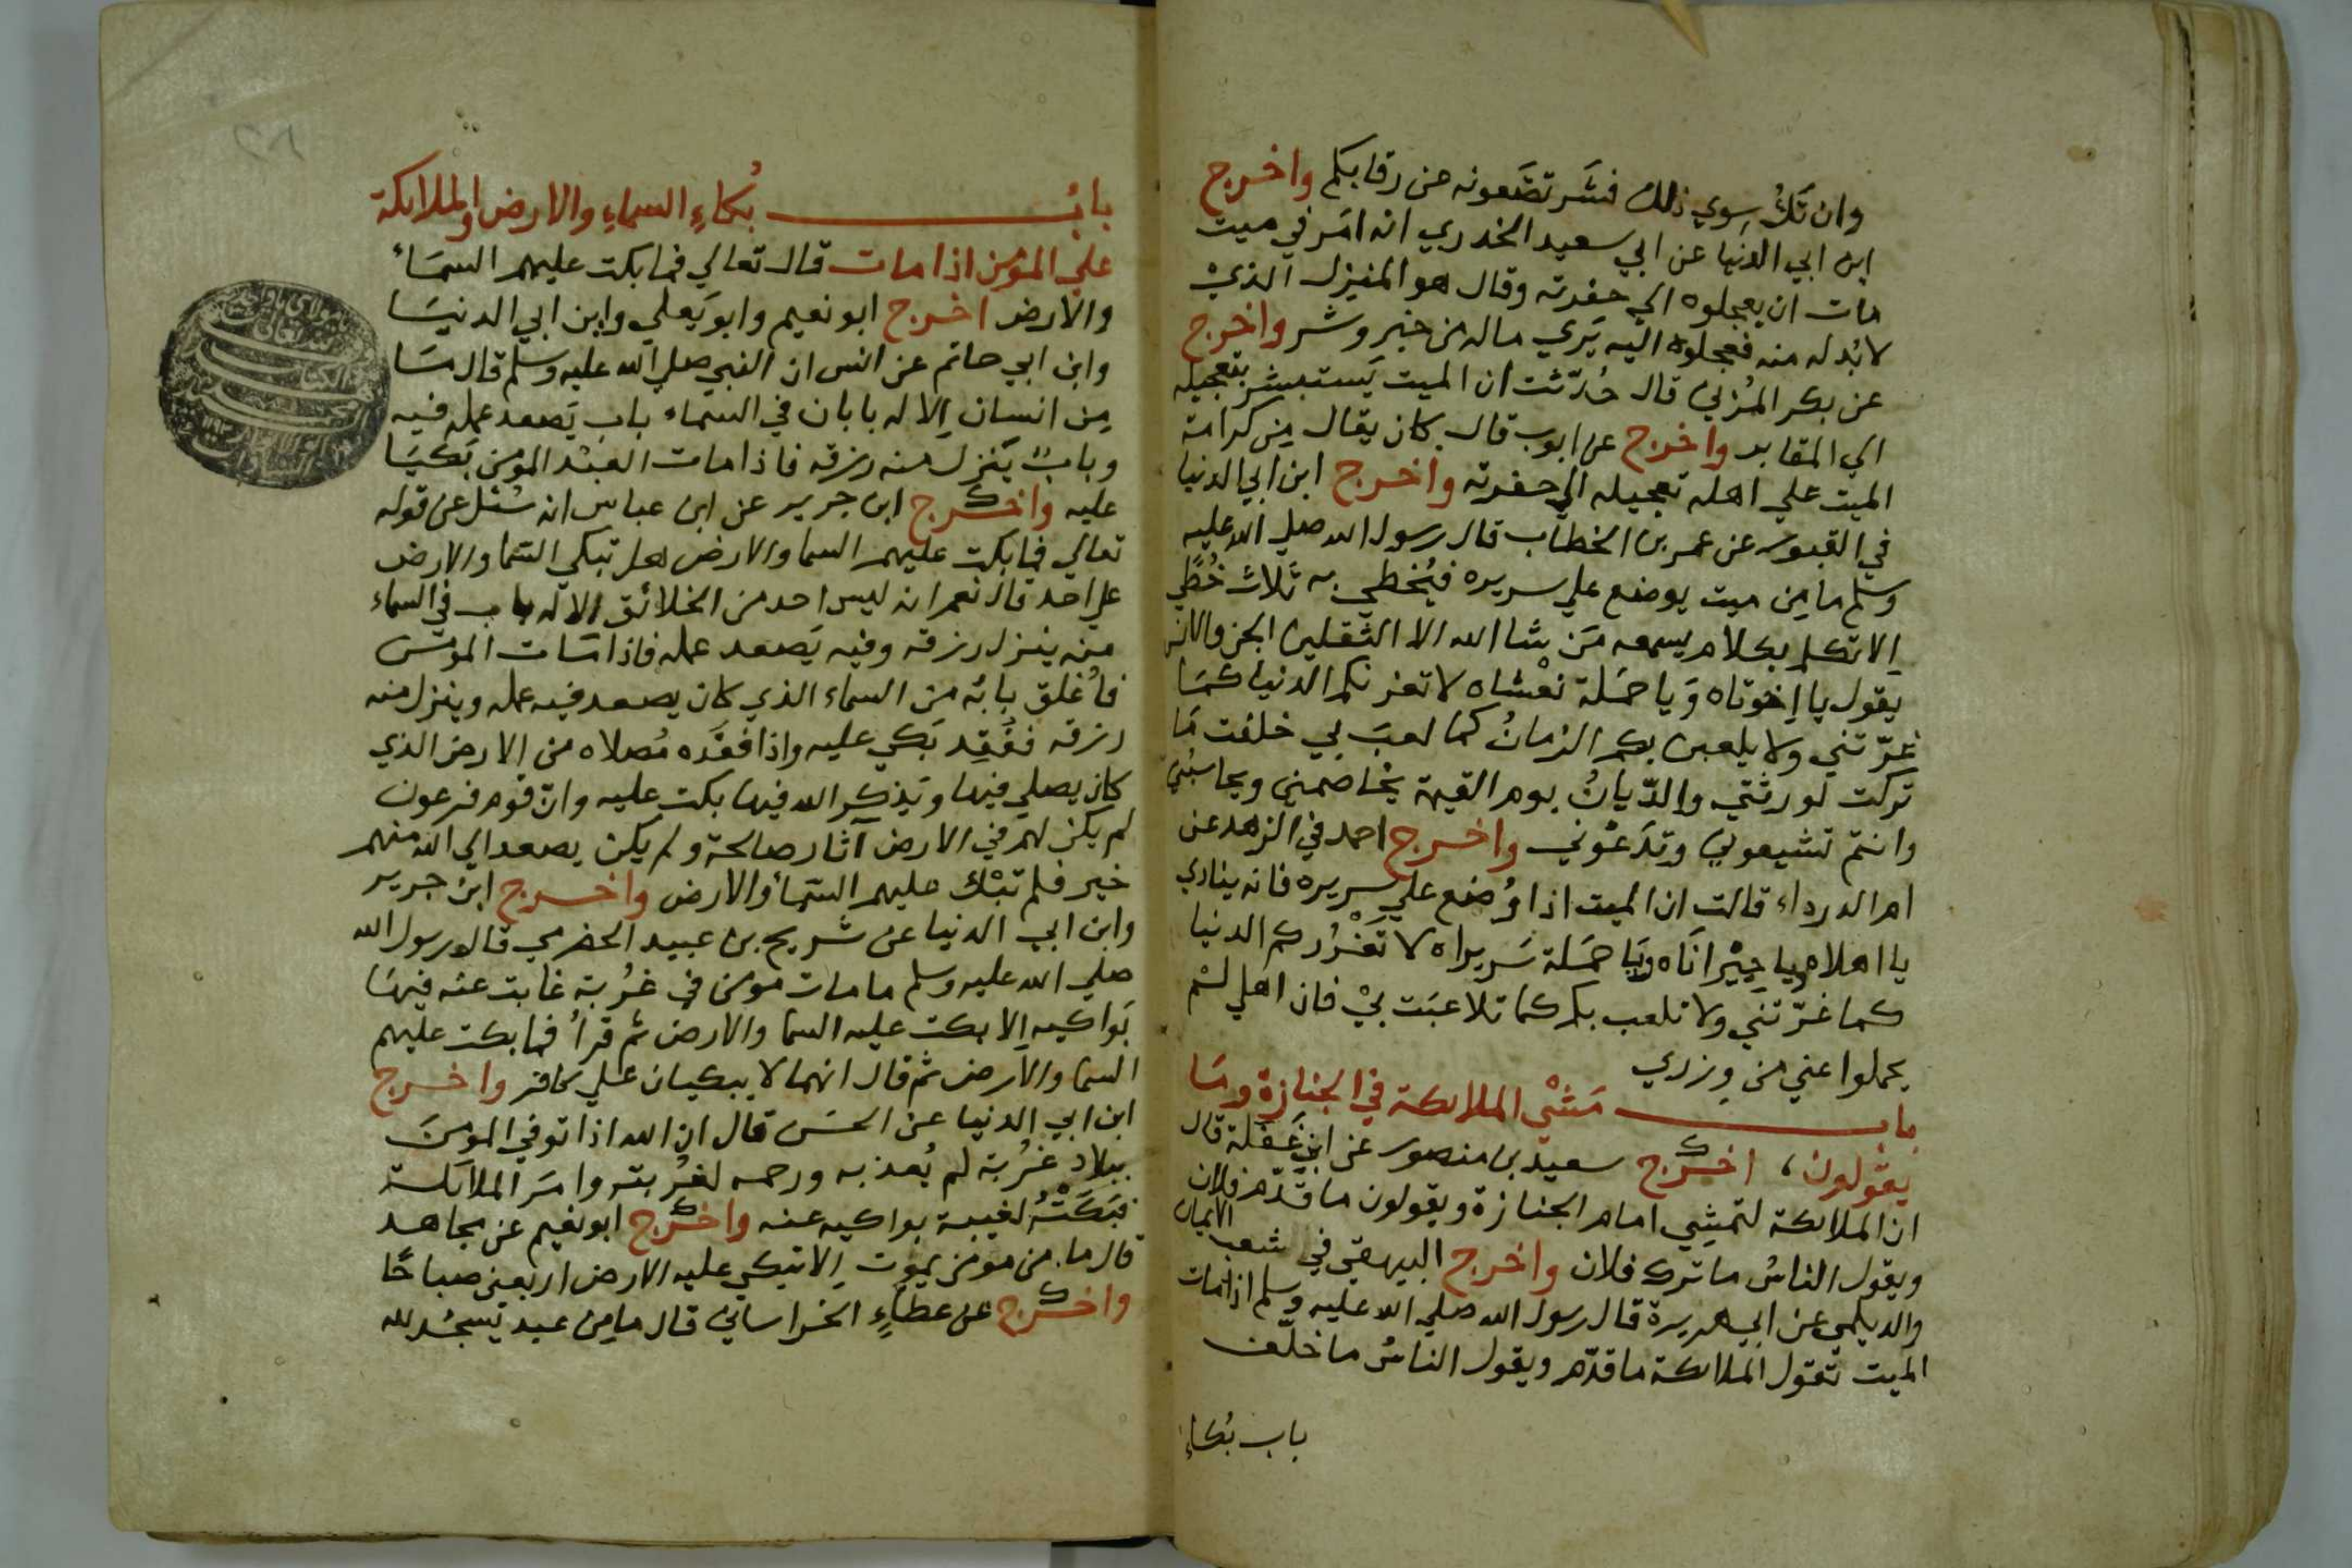 وان تَكُ سِوي ذلك فشَر تضَعونه عن رقابكم واخرج
ابن ابي الدنيا عن ابي سعيد الخدري انه امَر في ميت
مات ان يعجلوه الي حفرته وقال هو المنزل الذيْ
لا بُد له منه فعجلوه اليه يَري ماله من خير وشر واخرج
عن بكر المُزني قال حُدّثت ان الميت يَستبشر بتعجيله
الي المقابر واخرج عن ايوب قال كان يقال مِن كرامة
الميت علي اهله تعجيله الي حفرته واخرج ابن ابي الدنيا
في القبور عن عمر بن الخطاب قال رسول الله صلي الله عليه
وسلم ما مِن ميت يوضع علي سريره فيُخطي به ثلاث خُطًي
اِلا تكلم بكلام يسمعه مَن شا الله الا الثقلين الجن والانس
يَقول يا اِخوتاه وَيا حمَلة نعْشاه لا تغرنكم الدنيا كمَا
غرّتني ولا يلعبن بكم الزمانُ كما لعبَ بي خلفت مَا
تركت لورثتي والدّيانُ يوم القيمة يخاصمني ويحاسبُني
وانتم تشيعوني وتدَعوني واخرج احمد في الزهد عن
ام الدرداء قالت ان الميت اذا وُضع علي سريره فانه ينادي
يا اهلاه ويا جيْراناه ويَا حمَلة سَريراه لا تَغْرُركم الدنيا
كما غرّتني ولا تلعب بكم كما تلاعبَت بيْ فان اهلي لمْ
يحملوا عني من وِزري
باب مَشْي الملائكة في الجنازة ومَا
يقولون، اخرج سعيد بن منصور عن ابن غَفلة قال
ان الملائكة لتمشِي امام الجنازة ويقولون ما قدّم فلان
ويقول الناسُ ما ترك فلان واخرج البيهقي في شعب الايمان
والديلمي عن ابي هريرة قال رسول الله صلي الله عليه وسلم اذا مات
الميت تقول الملائكة ما قدّم ويقول الناسُ ما خلّف
باب بُكاءِ
بابُ بُكاءِ السماءِ والارض والملائكة
علي المؤمن اذا مات قال تعالي فما بكت عليهم السمَاءُ
والارض اخرج ابو نعيم وابو يَعلي وابن ابي الدنيَا
وابن ابي حاتم عن انس ان النبي صلي الله عليه وسلم قال مَا
مِن انسان اِلا له بابان في السماء باب يَصعد عمله فيه
وبابٌ يَنزل منه رزقه فاذا مات العبْد المؤمن بَكيَا
عليه واخرج ابن جرير عن ابن عباس انه سُئل عن قوله
تعالي فما بكت عليهم السما والارض هل تبكي السَّما والارض
علي احد قال نعم انه ليس احد من الخلائق اِلا له باب في السماء
منه ينزل رزقه وفيه يَصعد عمله فاذا مَات المؤمن
فاُغلق بابُه من السماء الذي كان يصعد فيه عمله وينزل منه
رزقه ففُقِد بَكي عليه واذا فقَدَه مُصلاه من الارض الذي
كان يصلي فيها ويَذكر الله فيها بكت عليه وانّ قوم فرعون
لم يكن لهم في الارض آثار صالحة ولم يكن يصعد الي الله منهم
خير فلم تَبْك عليهم السمَاءُ والارض واخرج ابن جرير
وابن ابي الدنيا عن شريح بن عبيد الحضرمي قال رسول الله
صلي الله عليه وسلم ما مات مؤمن في غُربة غابت عنه فيهَا
بَواكيه اِلا بكت عليه السما والارض ثم قرأ فما بكت عليهم
السما والارض ثم قال انهما لا يبكيان علي كافر واخرج
ابن ابي الدنيا عن الحسَن قال ان الله اذا توفي المؤمنَ
ببلادِ غُربة لم يُعذبه ورحمه لغُربته وامَر الملائكة
فبَكَتْهُ لغيبة بواكيه عنه واخرج ابو نعيم عن مجاهد
قال ما من مؤمن يموت اِلا تبكي عليه الارض اربعين صباحًا
واخرج عن عطاءٍ الخراساني قال ما مِن عبد يَسجُد لله